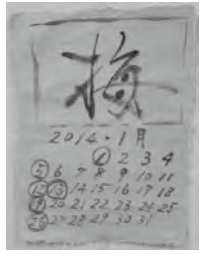 梅
2014・1月
1 2 3 4
5 6 7 8 9 10 11
12 13 14 15 16 17 18
19 20 21 22 23 24 25
26 27 28 29 30 31